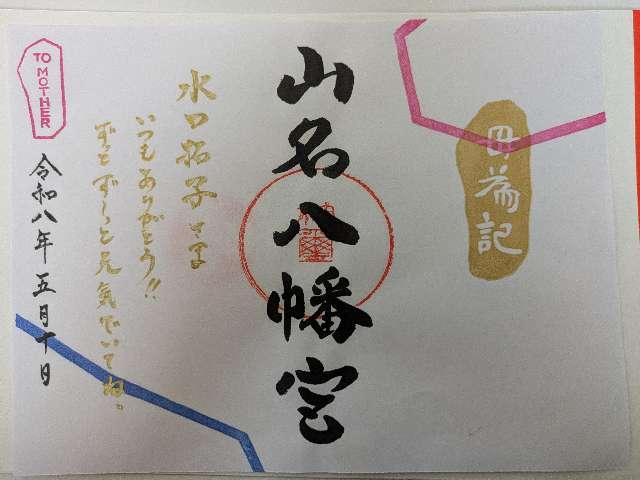 毋養記
山名八幡宮
水口拓子さま
いつもありがとう!!
ずっとずーっと元気でいてね。
令和八年五月十日
TO
MOTHER